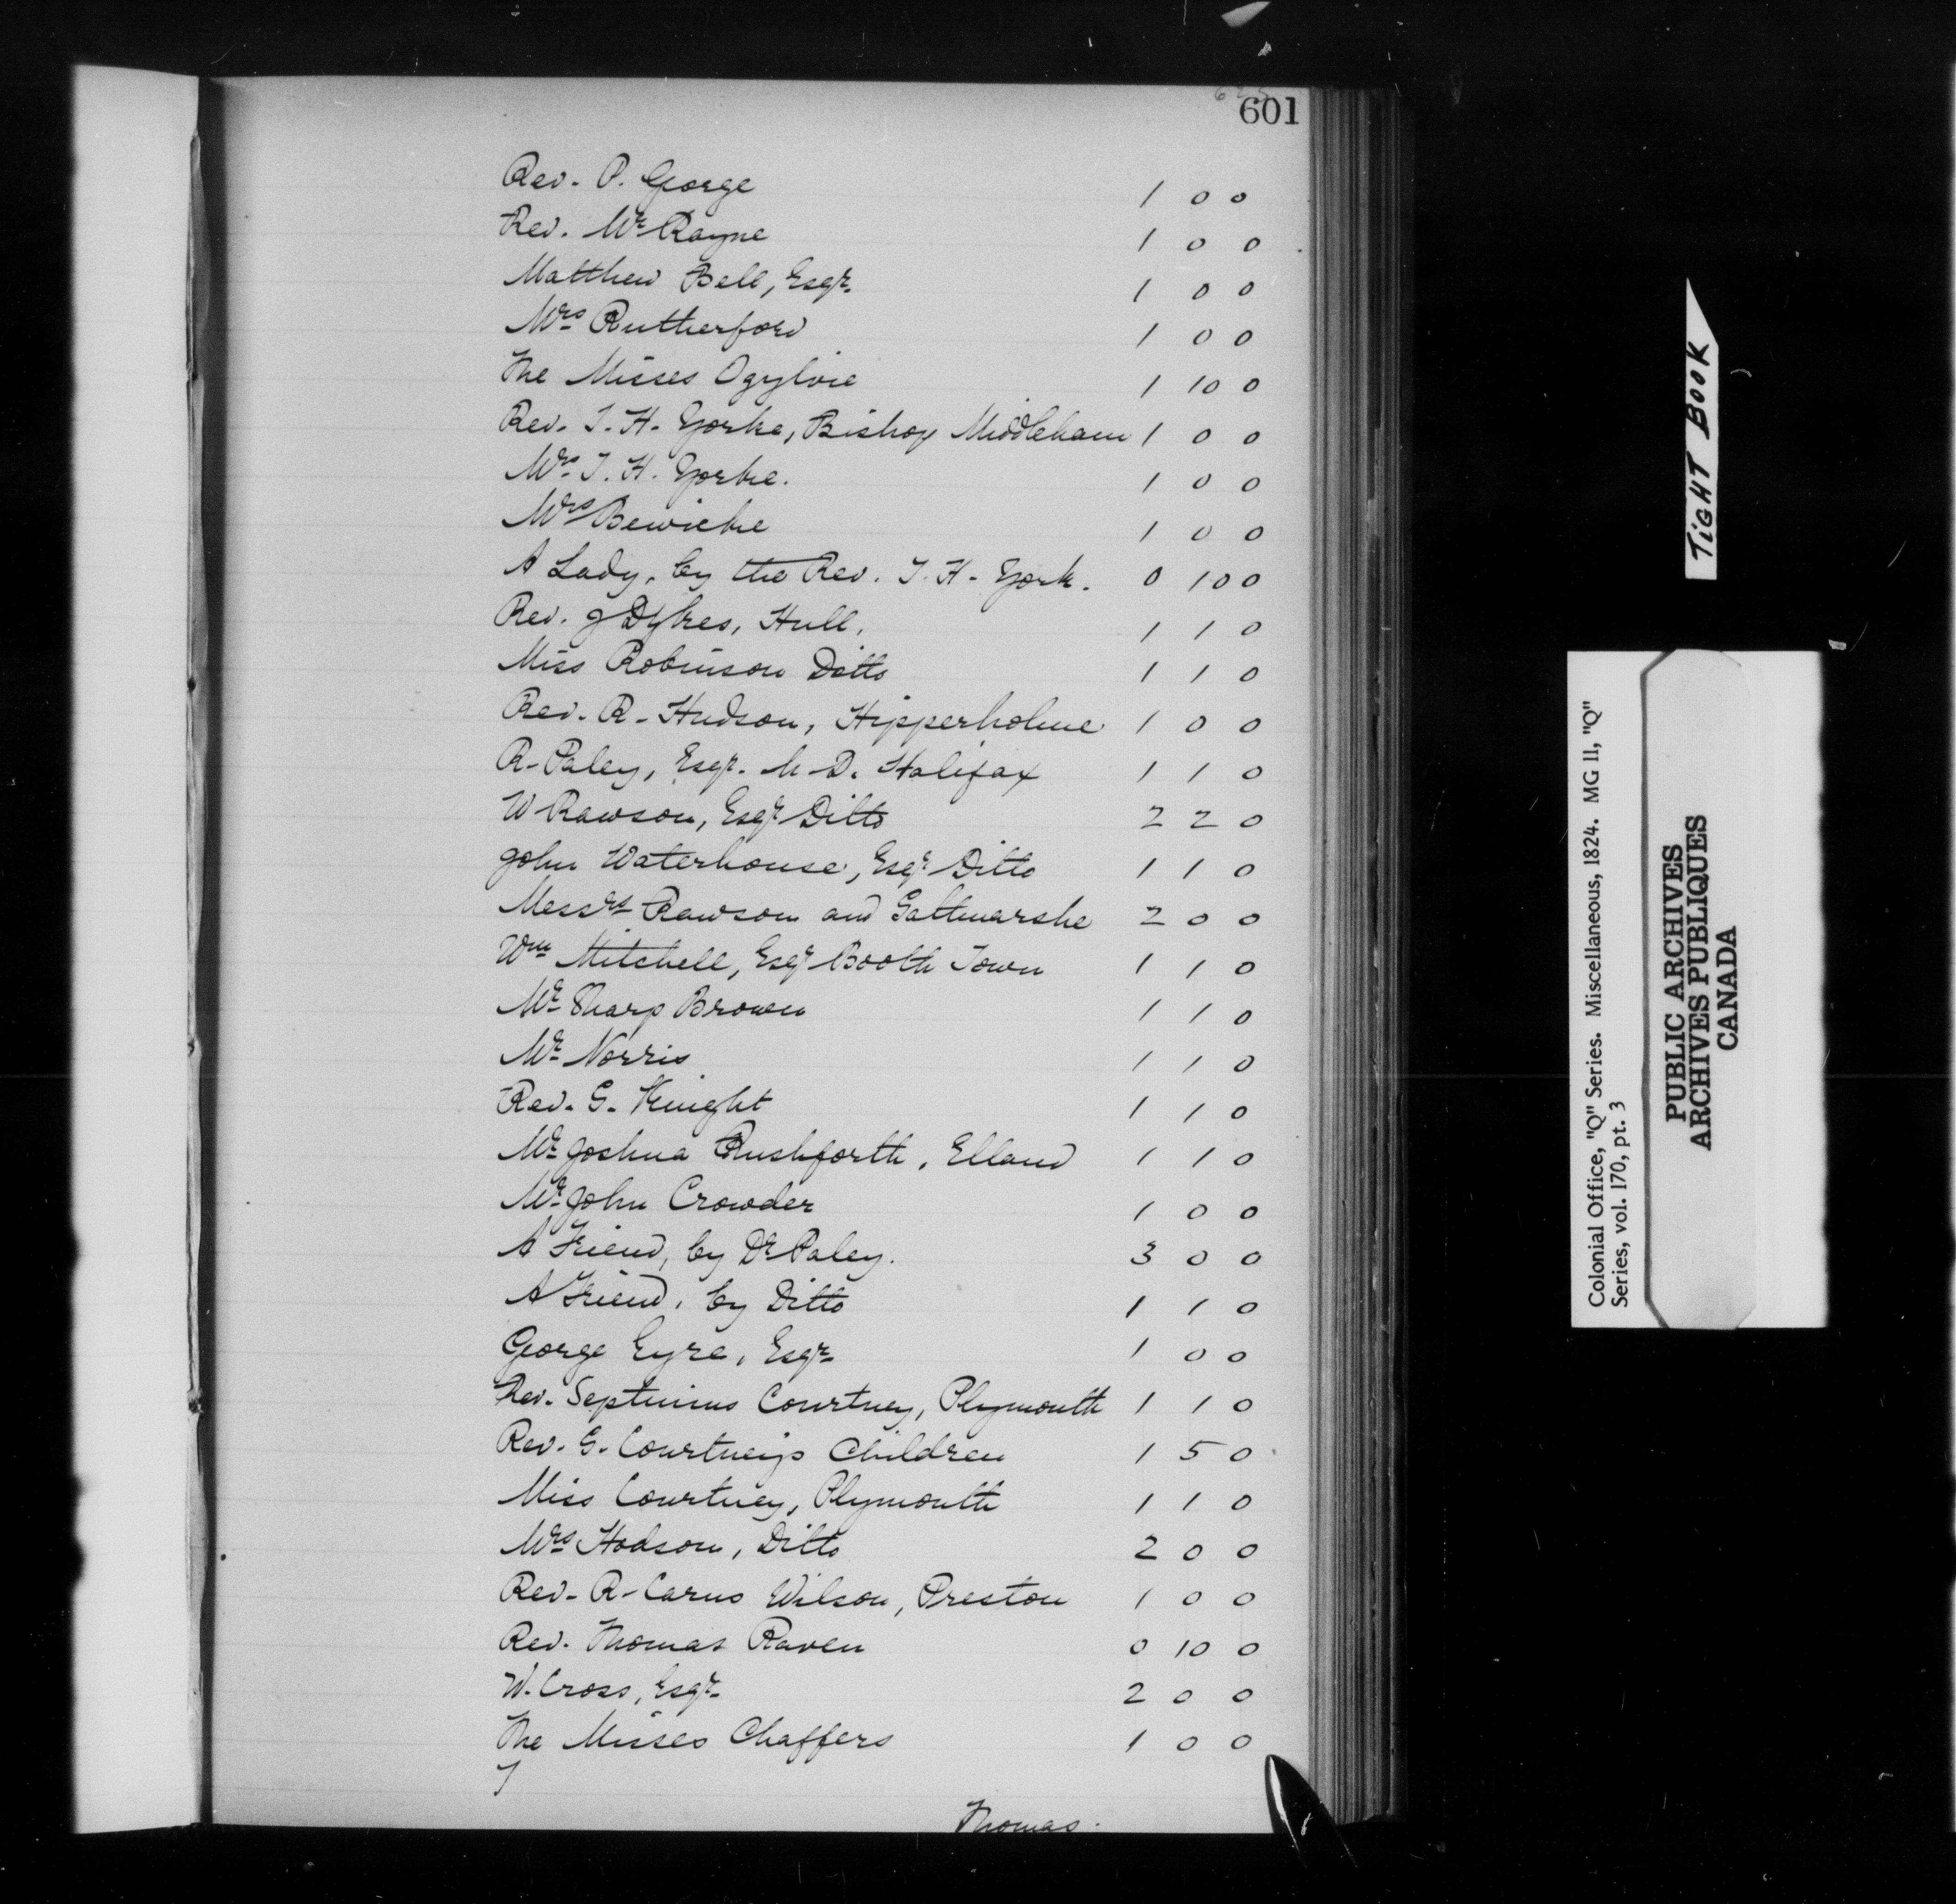 601
Rev. P. George 1 0 0
Rev. Mr Rayne 1 0 0
Matthew Bell, Esqr. 1 0 0
Mrs Rutherford 1 0 0
The Misses Ogylvie 1 10 0
Rev. T. H. Yorke, Bishop Middleham 1 0 0
Mrs T. H. Yorke. 1 0 0
Mrs Bewicke 1 0 0
A Lady, by the Rev. T. H. York. 0 10 0
Rev. J Dykes, Hull, 1 1 0
Miss Robinson Ditto 1 1 0
Rev. R. Hudson, Hipperholme 1 0 0
R. Paley, Esqr. M. D. Halifax 1 1 0
W Rawson, Esqr Ditto 2 2 0
John Waterhouse, Esqr Ditto 1 1 0
Messrs Rawson and Saltmarshe 2 0 0
Wm Mitchell, Esqr Booth Town 1 1 0
Mr Sharp Brown 1 1 0
Mr Norris 1 1 0
Rev. S. Knight 1 1 0
Mr Joshua Rushforth, Elland 1 1 0
Mr John Crowder 1 0 0
A Friend, by Dr Paley. 3 0 0
A Friend, by Ditto 1 1 0
George Eyre, Esqr. 1 0 0
Rev. Septimus Courtney, Plymouth 1 1 0
Rev. S. Courtney's Children 1 5 0
Miss Courtney, Plymouth 1 1 0
Mrs Hodson, Ditto 2 0 0
Rev. R. Carus Wilson, Preston 1 0 0
Rev. Thomas Raven 0 10 0
W. Cross, Esqr. 2 0 0
The Misses Chaffers 1 0 0
Thomas.
TIGHT BOOK
Colonial Office, "Q" Series. Miscellaneous, 1824. MG 11, "Q"
Series, vol. 170, pt. 3
PUBLIC ARCHIVES
ARCHIVES PUBLIQUES
CANADA